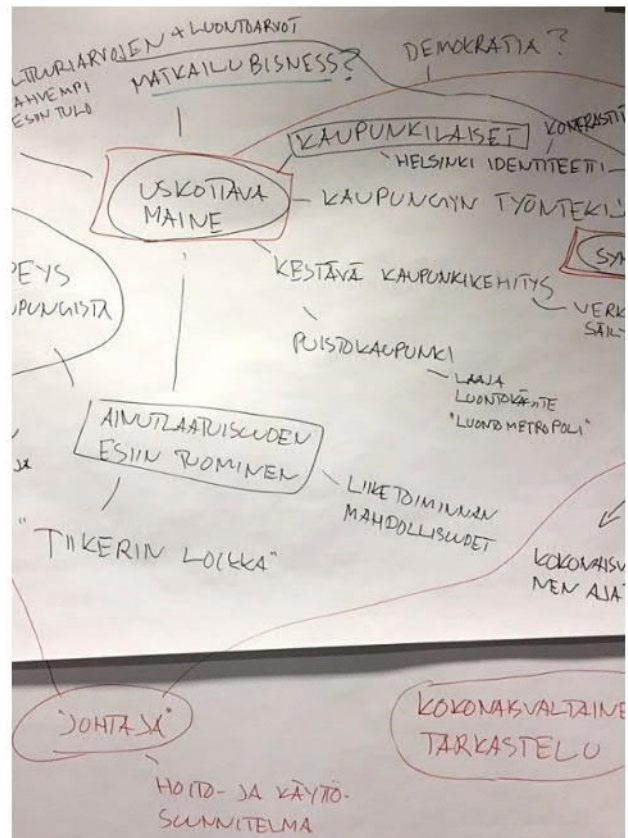 LTTUURIARVOJEN + LUONTOARVOT
AHVEMPI
ESIIN TULO
MATKAILUBISNESS?
DEMOKRATIA?
KAUPUNKILAISET
HELSINKI IDENTITEETTI
USKOTTAVA
MAINE
KAUPUNGIN TYÖNTEKIJ
SYM
PEYS
UPUNGISTA
KESTÄVÄ KAUPUNKIKEHITYS
VERK
SÄIL
PUISTOKAUPUNKI
LAAJA
LUONTOKÄSITE
"LUONTOMETROPOLI"
AINUTLAATUISUUDEN
ESIIN TUOMINEN
JA
LIIKETOIMINNAN
MAHDOLLISUUDET
"TIIKERIN LOIKKA"
KOKONAISV
NEN AJAT
"JOHTAJA"
HOITO- JA KÄYTTÖ-
SUUNNITELMA
KOKONAISVALTAINE
TARKASTELU